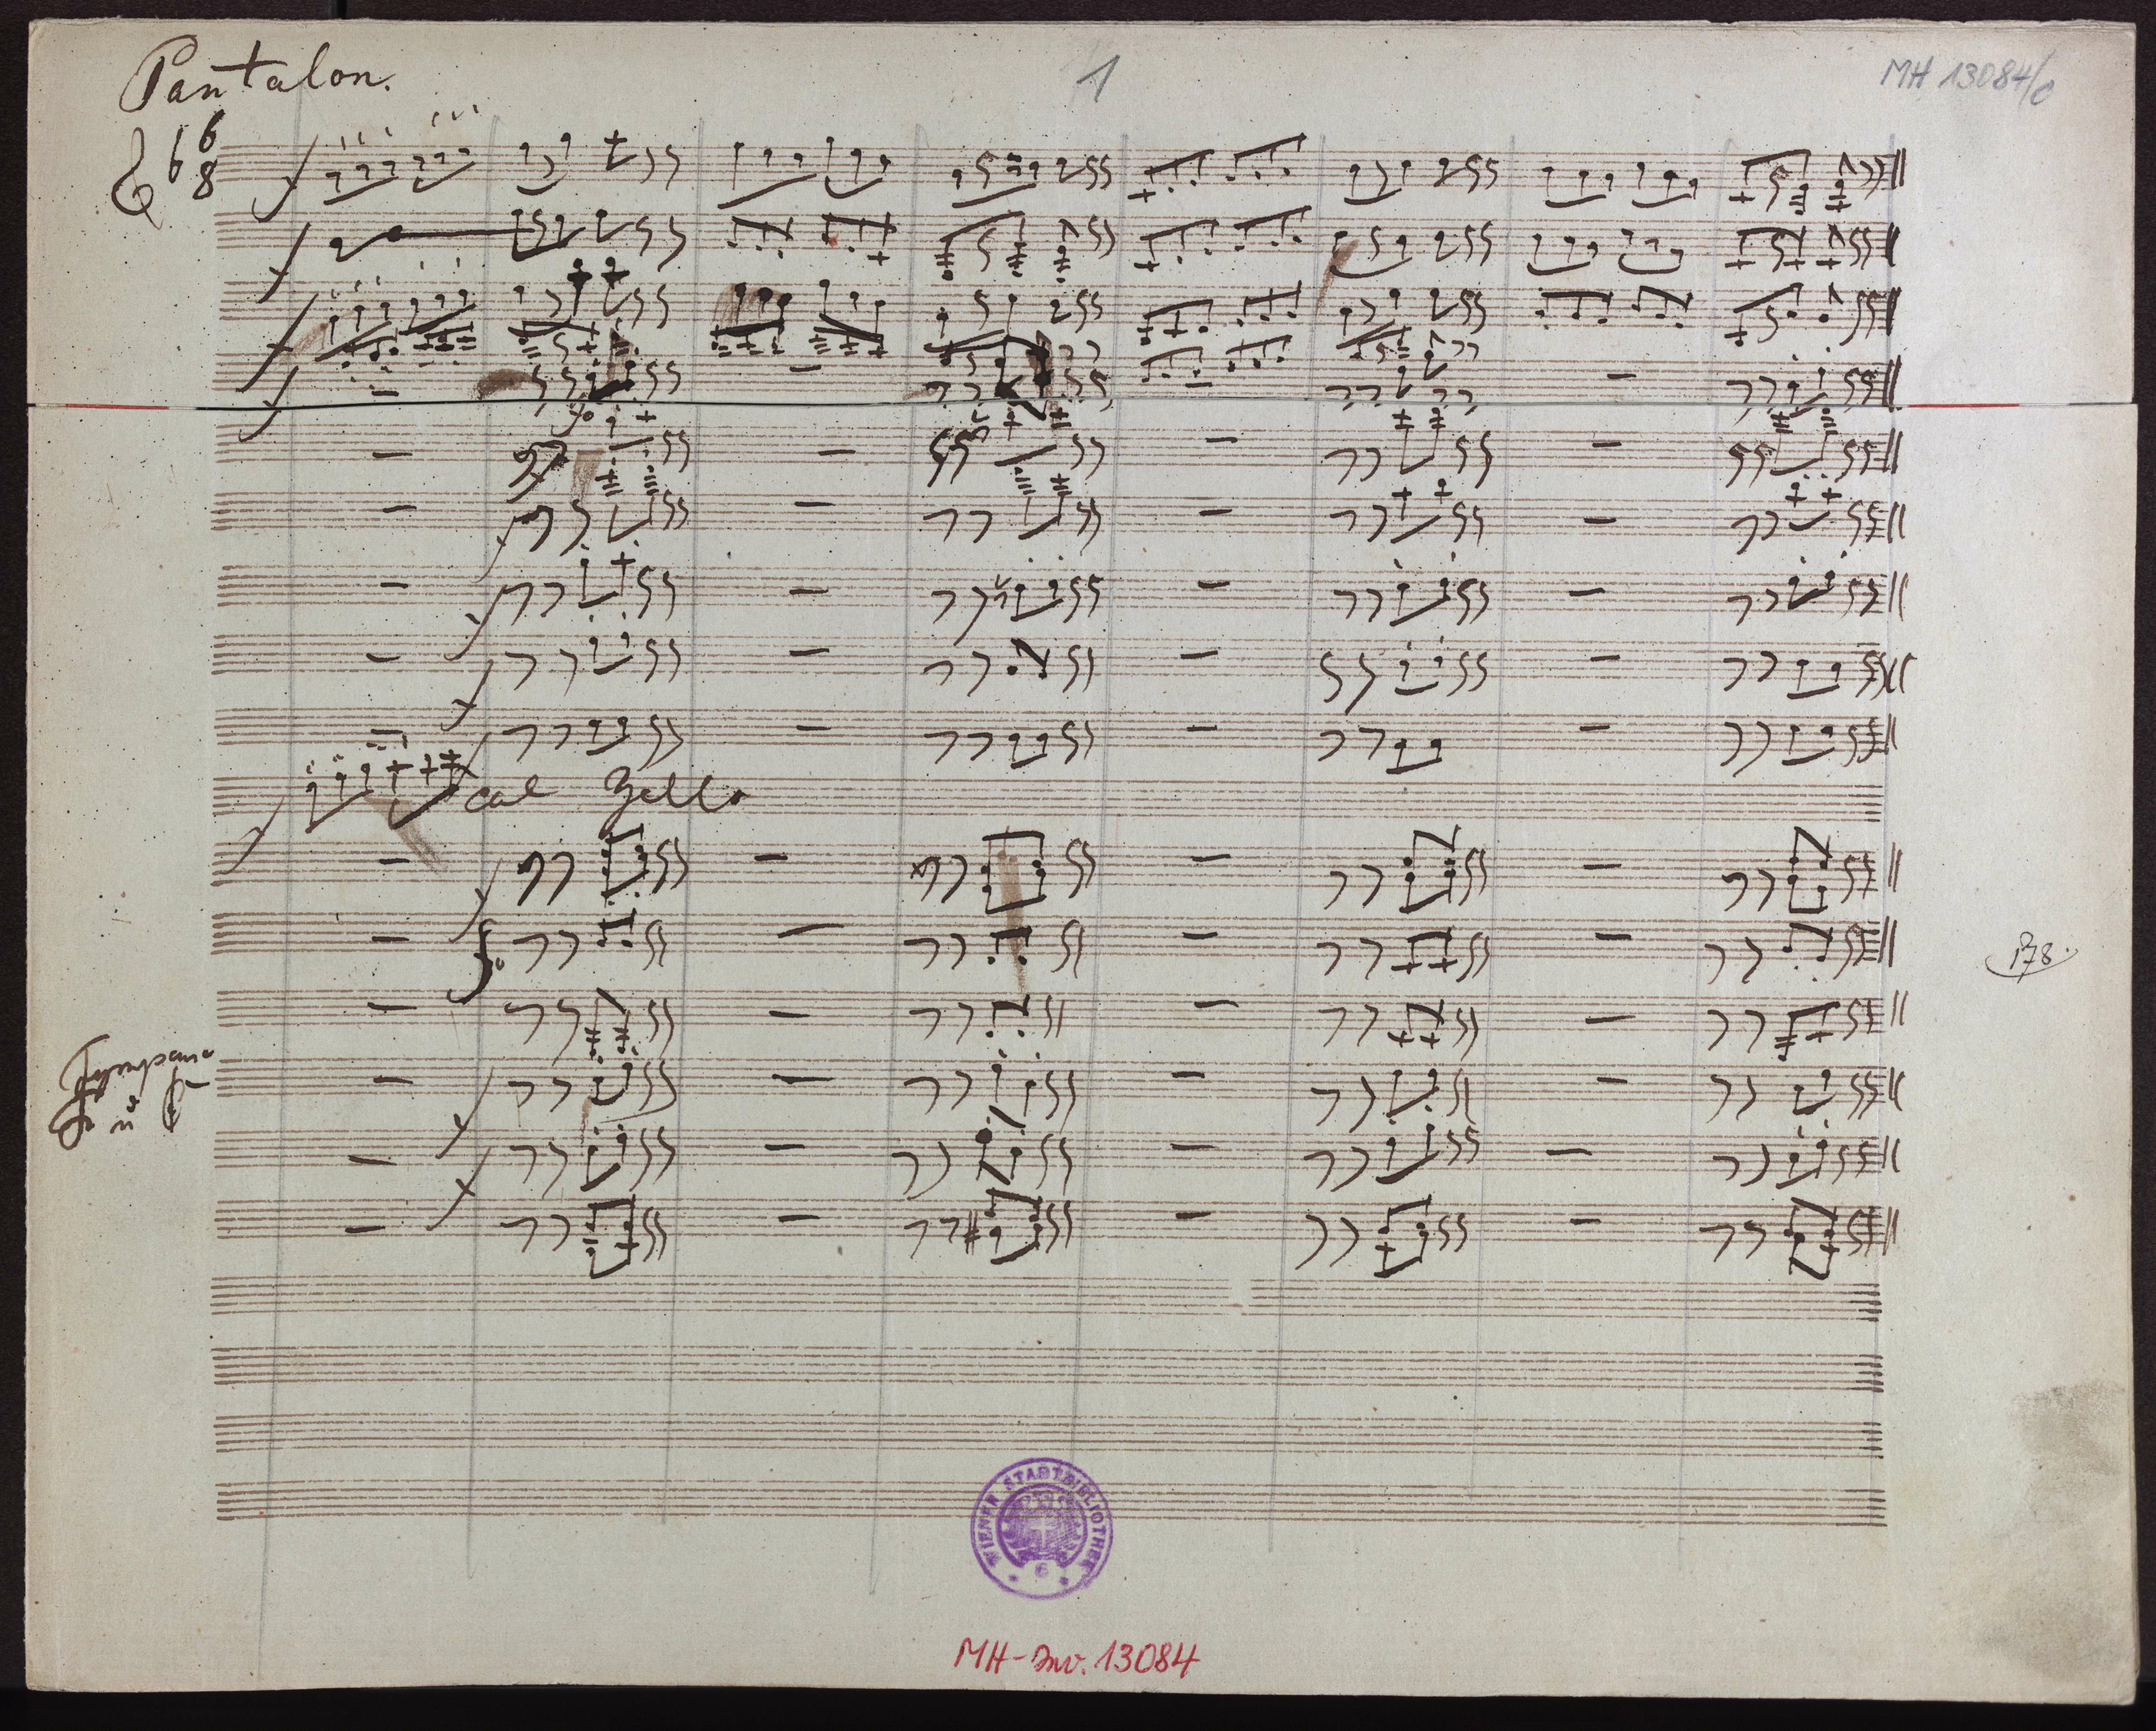 Pantalon.
1
MH 13084/c
6
8
col Zello
178.
Tympano
WIENER STADTBIBLIOTHEK
MH-Inv. 13084